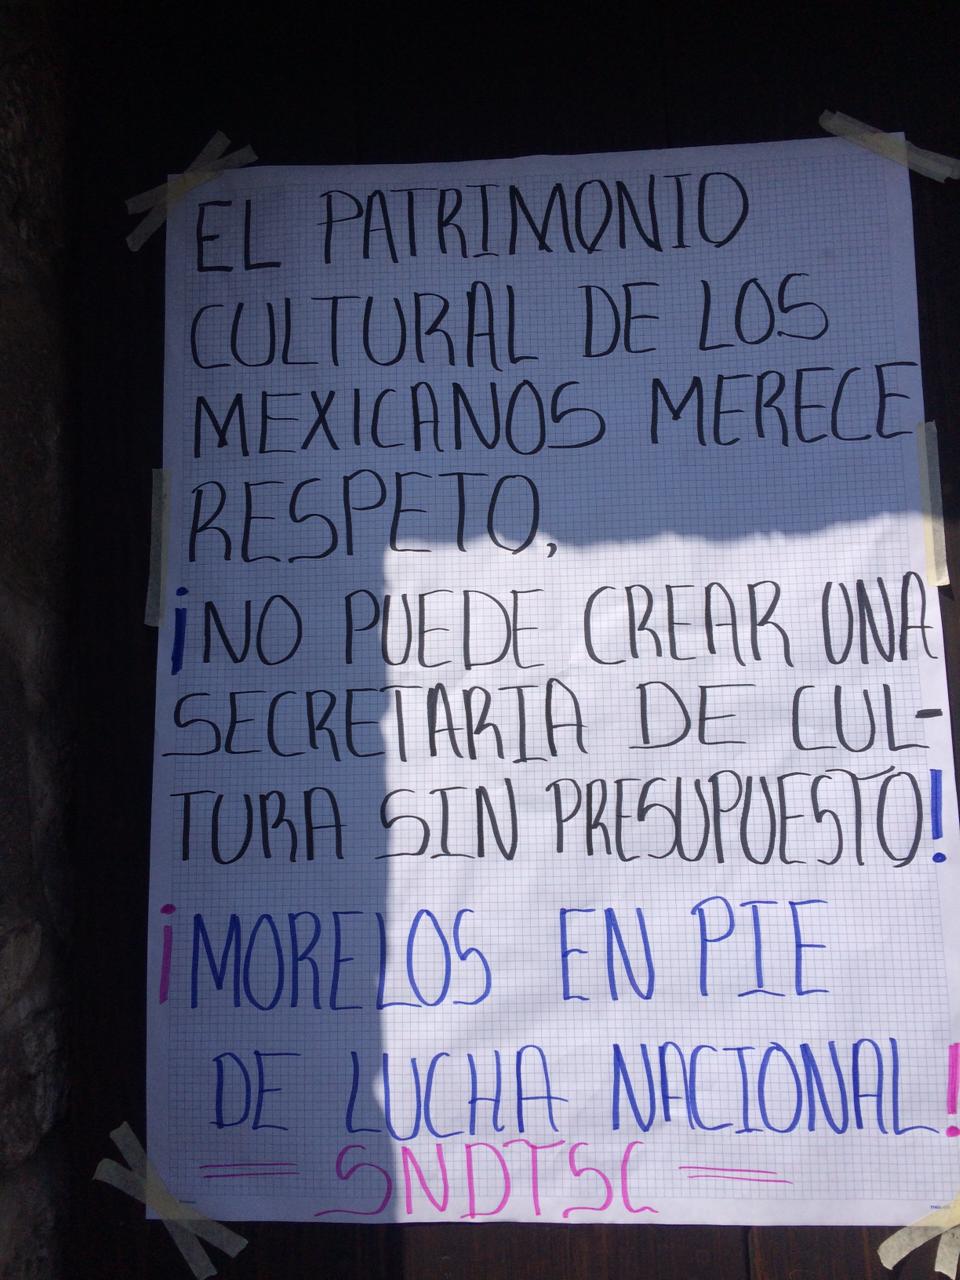 EL PATRIMONIO
CULTURAL DE LOS
MEXICANOS MERECE
RESPETO,
¡NO PUEDE CREAR UNA
SECRETARIA DE CUL-
TURA SIN PRESUPUESTO!
¡MORELOS EN PIE
DE LUCHA NACIONAL!
SNDTSC